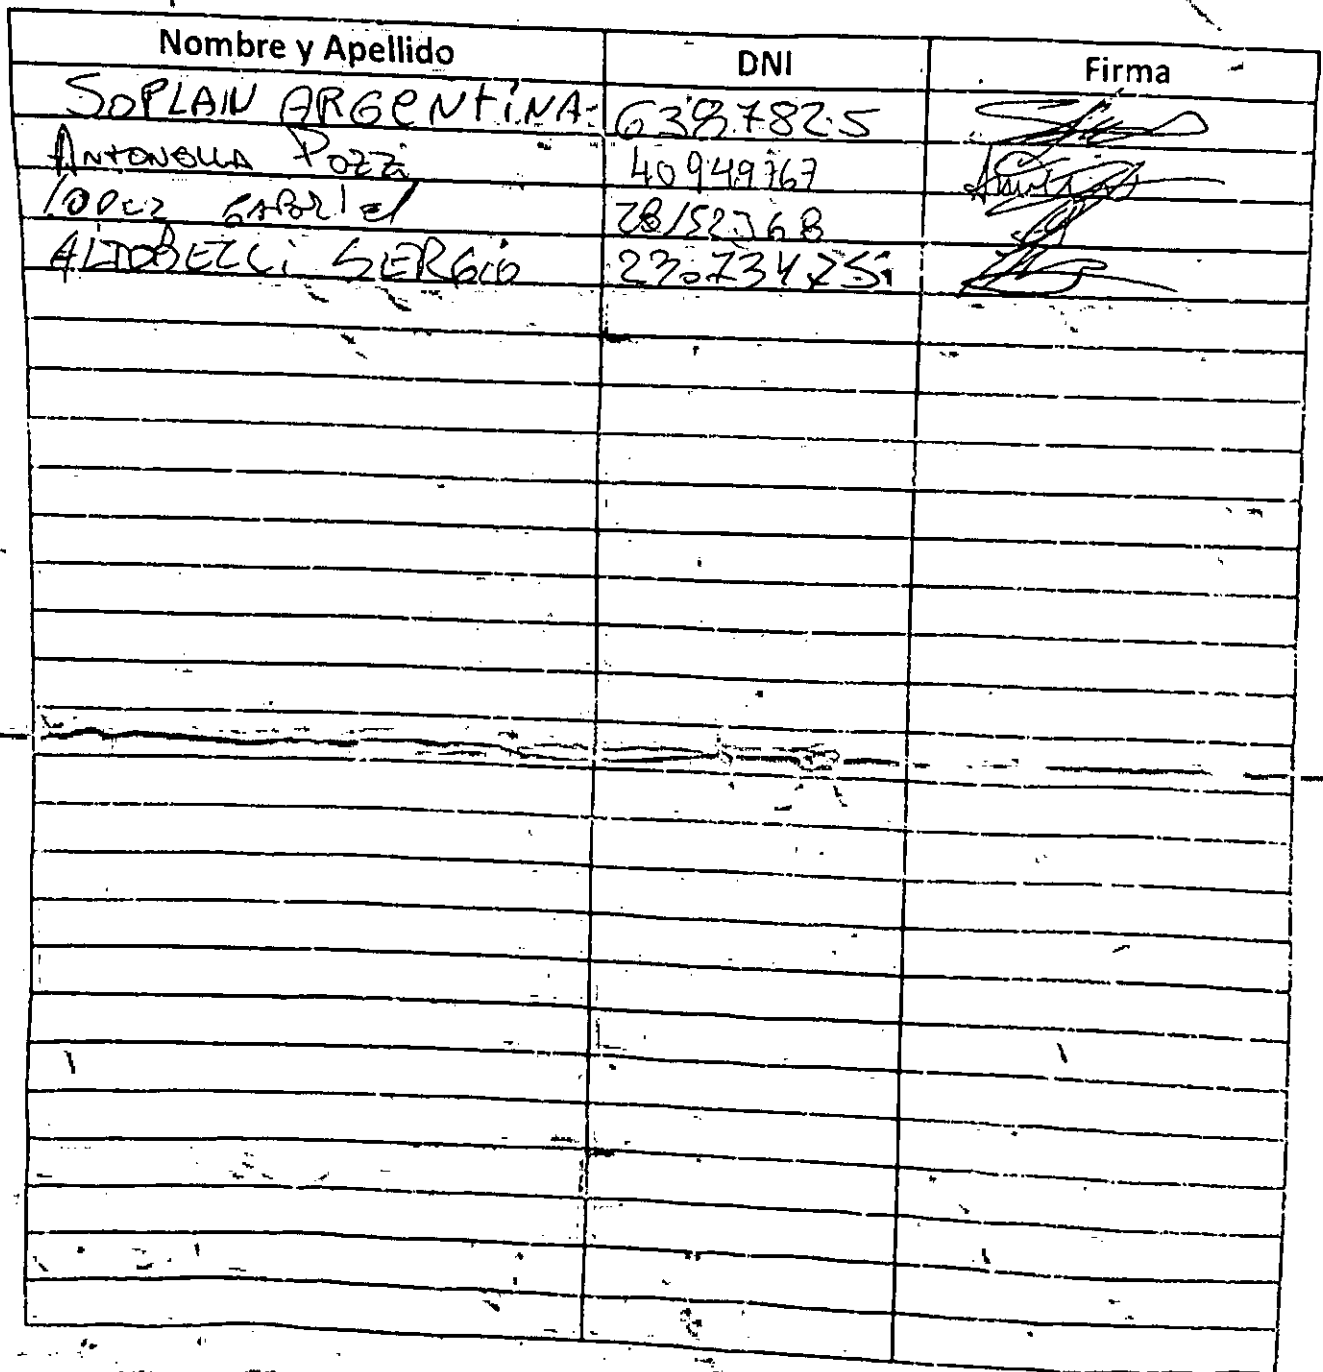 Nombre y Apellido DNI Firma
SOPLAN ARGENTINA- 6387825
ANTONELLA POZZI 40949767
LOPEZ GABRIEL 28152368
SERGIO